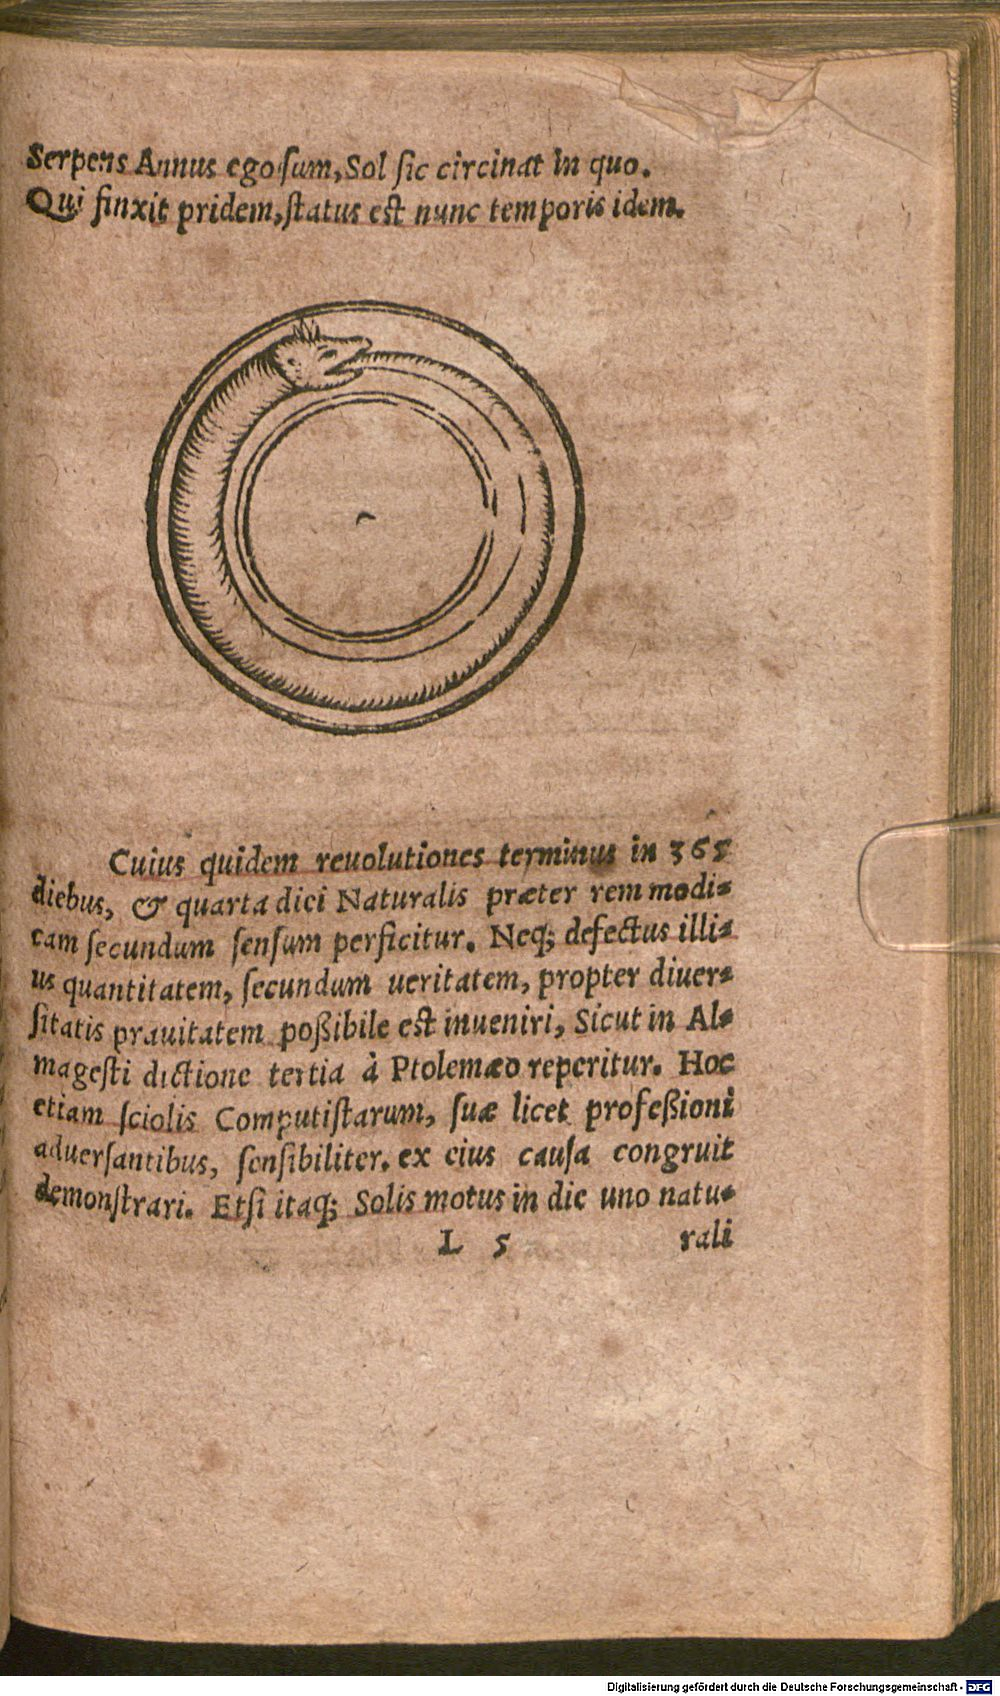 Serpens Annus ego sum, Sol sic circinat in quo.
Qui finxit pridem, status est nunc temporis idem.
Cuius quidem reuolutiones terminus in 365
diebus, & quarta dici Naturalis præter rem modi-
cam secundum sensum perficitur. Neq; defectus illi-
us quantitatem, secundum ueritatem, propter diuer-
sitatis prauitatem poßibile est inueniri, Sicut in Al-
magesti dictione tertia à Ptolemæo reperitur. Hoc
etiam sciolis Computistarum, suæ licet profeßioni
aduersantibus, sensibiliter. ex eius causa congruit
demonstrari. Etsi itaq; Solis motus in die uno natu-
L 5 rali
Digitalisierung gefördert durch die Deutsche Forschungsgemeinschaft - DFG